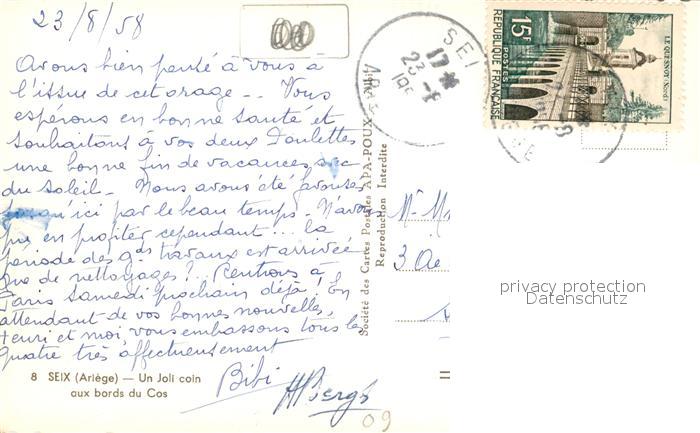 23/8/58
Avons bien pensé à vous à
l'issue de cet orage -.. Vous
espérons en bonne santé et
souhaitons à vos deux Poulettes
une bonne fin de vacances avec
du soleil - Nous avons été favorisés
jusqu'ici par le beau temps. N'avons
pu en profiter cependant... la
période des gds travaux est arrivée
que de nettoyages ?.. Rentrons à
Paris samedi prochain déjà ! En
attendant de vos bonnes nouvelles,
Henri et moi, vous embrassons tous les
quatre très affectueusement
Bibi
8 SEIX (Ariège) — Un Joli coin
aux bords du Cos
Société des Cartes Postales APA-POUX - Albi
Reproduction Interdite
15F
POSTES
REPUBLIQUE FRANÇAISE
LE QUESNOY (Nord)
SEI
17 H
23 - 8
ARIEGE
Mr M
3
privacy protection
Datenschutz
09